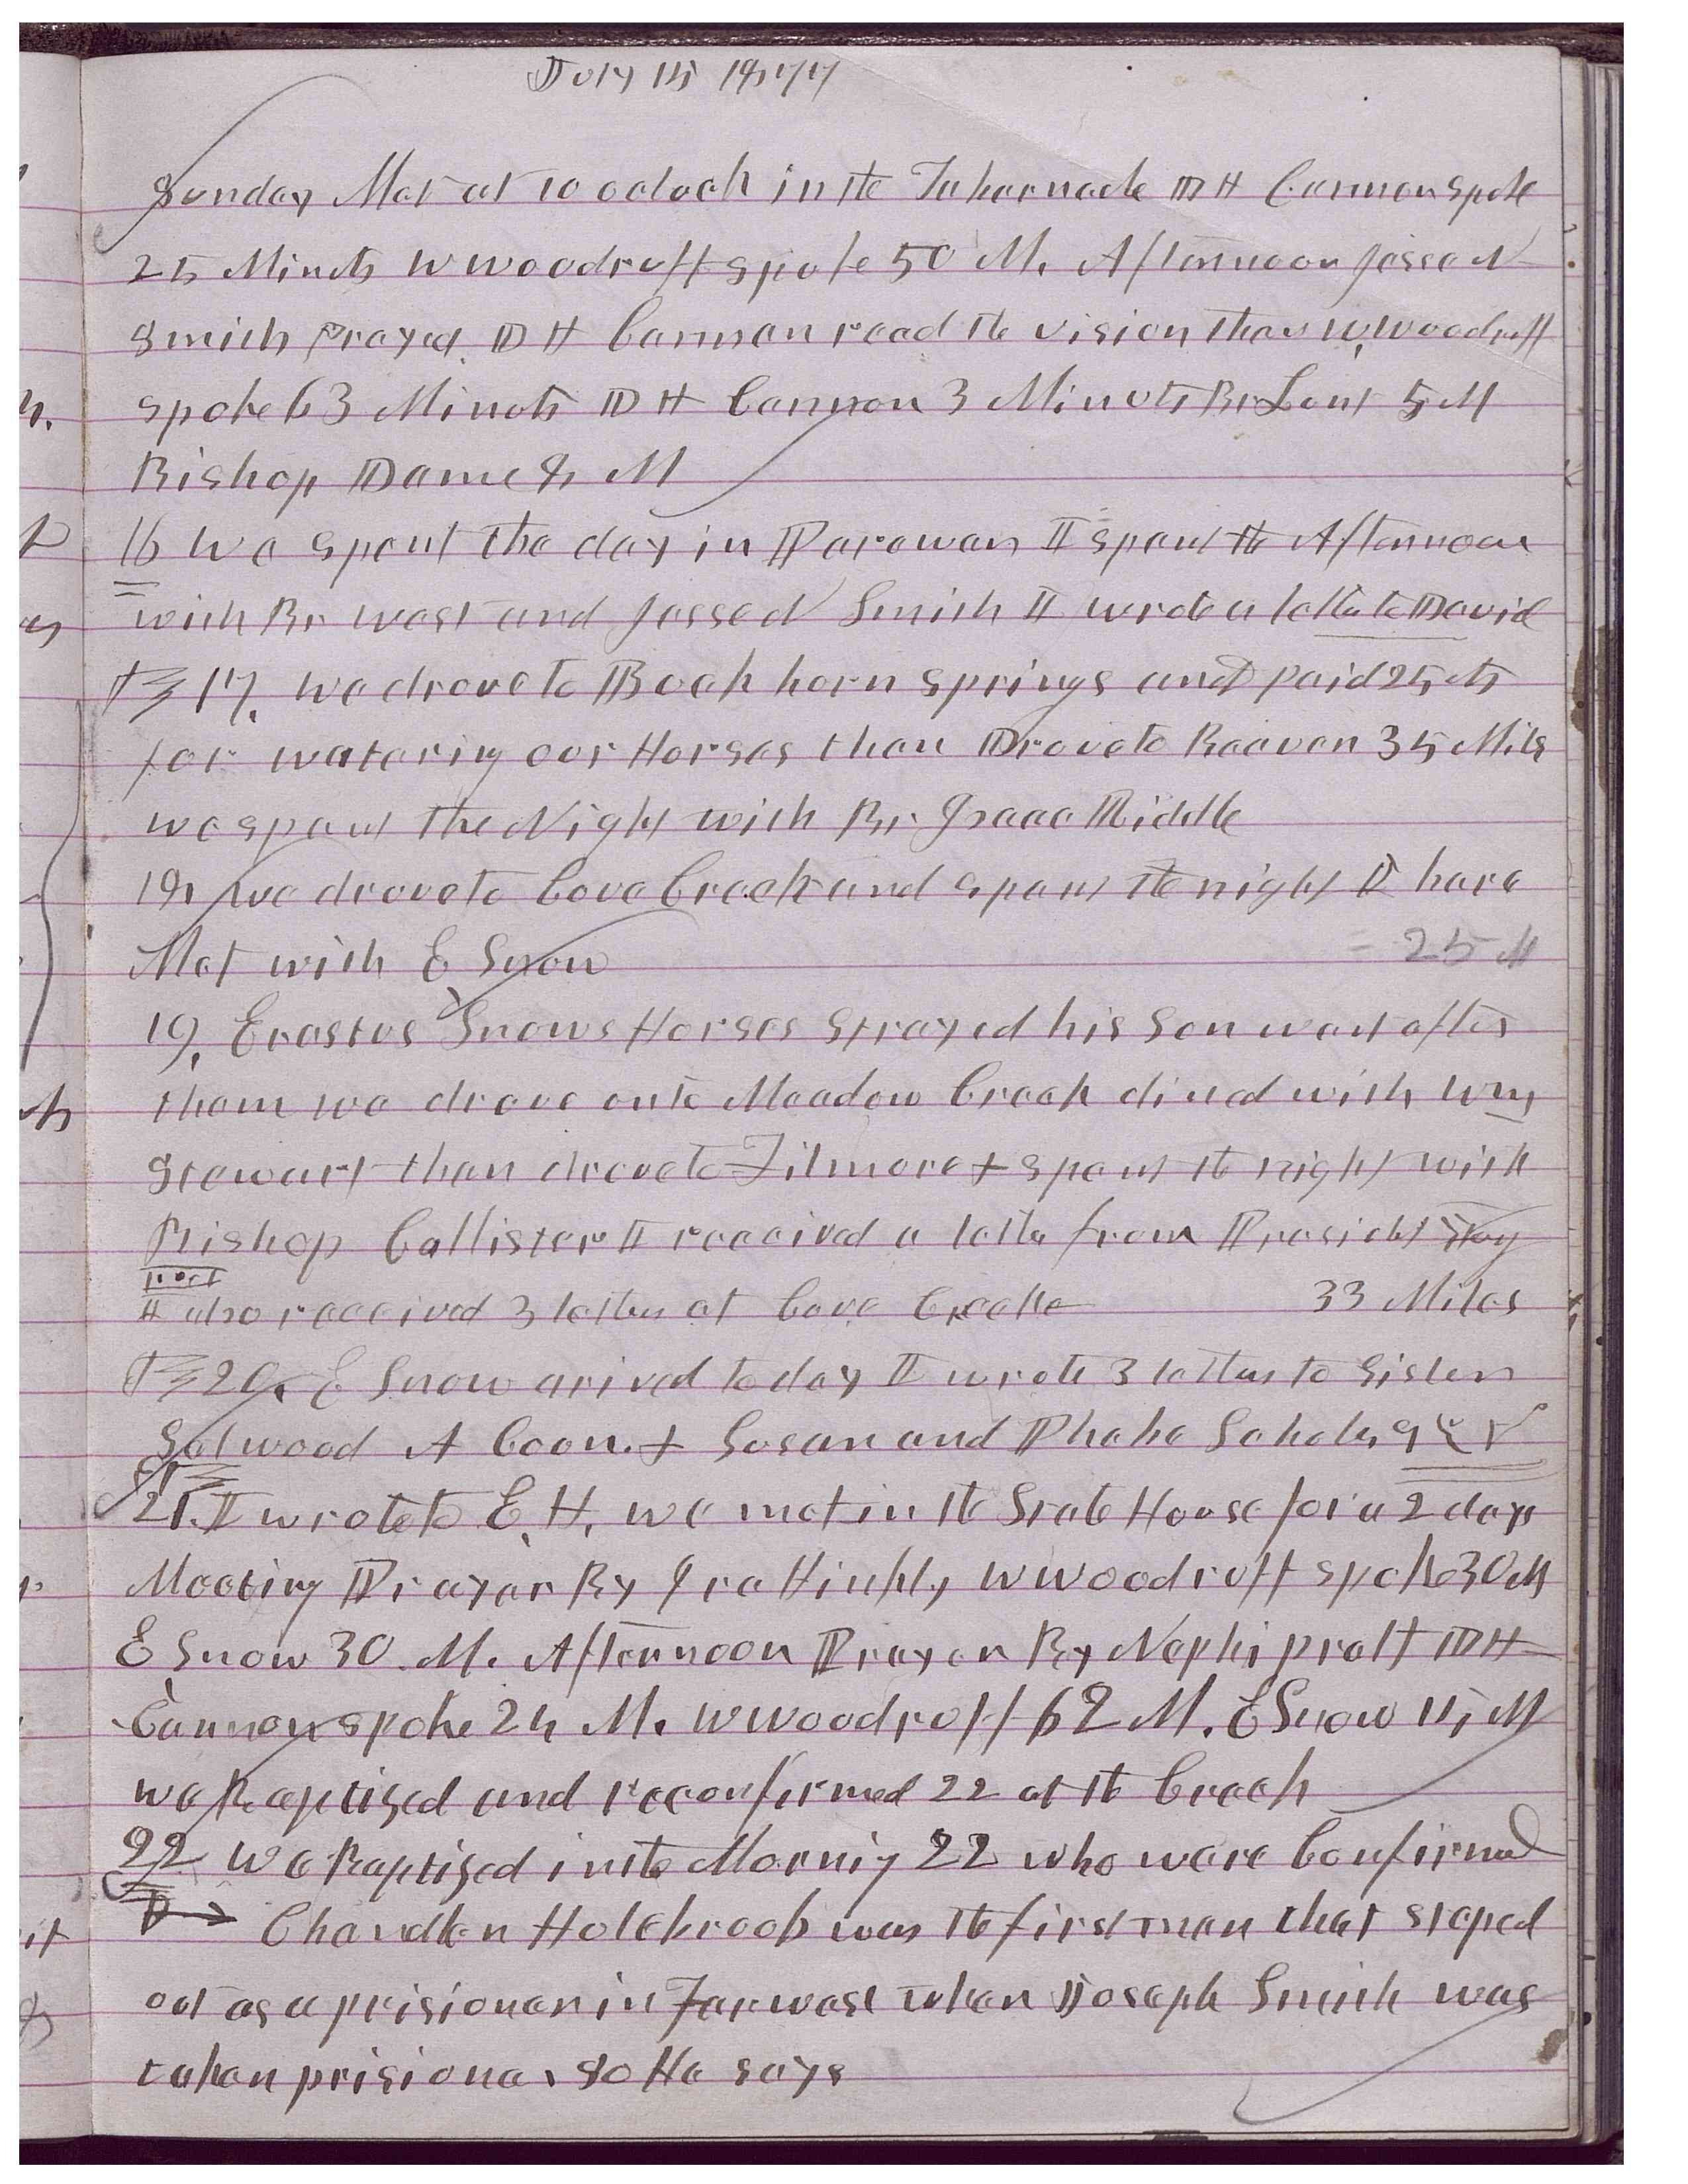 July 15 1877
Sunday Met at 10 oclock in the Tabernacle D H Cannon spoke
25 Minuts W Woodruff spoke 50 M. Afternoon Jesse N
Smith Prayed. D H Cannon read the vision then W. Woodruff
spoke 63 Minuts D H Cannon 3 Minuts Br Lunt 5 M
Bishop Dame 8 M
16 We spent the day in Parowan I spent the Afternoon
with Br West and Jesse N Smith I wrote a letter to David
17. we drove to Buck horn springs and paid 25 cts
for watering our Horses then Drove to Beaver 35 Mils
we spent the Night with Br Isaac Riddle
18 we drove to Cove Creek and spent the night I here
Met with E Snow = 25 M
19. Erastus Snows Horses strayed his son went after
them we drove on to Meadow Creek dined with Wm
Stewart then drove to Filmore & spent the night with
Bishop Callister I received a letter from Presidet
I also received 3 letters at Cove Creek 33 Miles
20. E Snow arived to day I wrote 3 letters to Sisters
A Coon. & Susan and Phebe
21. I wrote to E. H. we met in the State House for a 2 days
Meeting Prayer By Ira Hinkly W Woodruff spoke 30 M
E Snow 30 M. Afternoon Prayer By Nephi pratt D H
Cannon spoke 24 M. W Woodruff 62 M. E Snow 15 M
we Baptized and reconfirmed 22 at the Creek
22 We Baptized in the Mornig 22 who were Confirmed
Chandler Holebrook was the first man that steped
out as a prisioner in Far west when Joseph Smith was
taken prisioner so He says